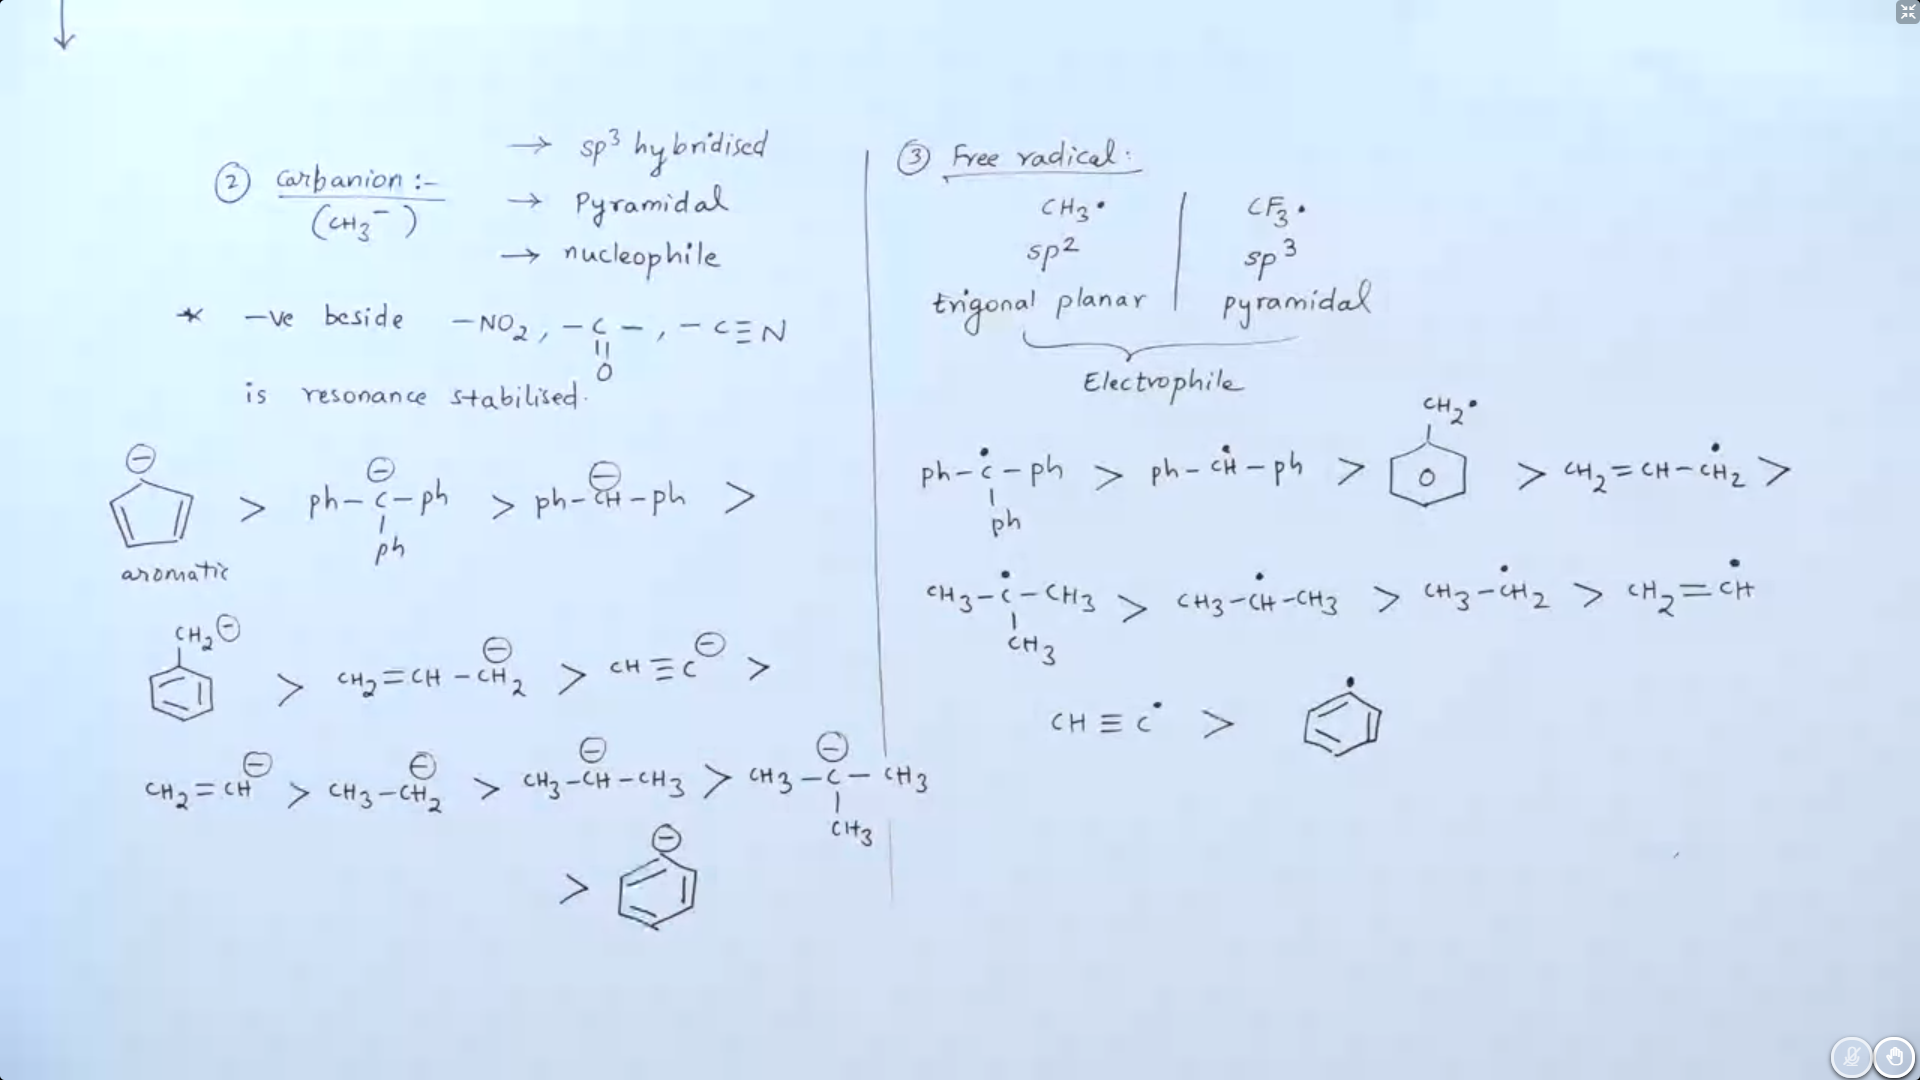 ② Carbanion :-
(CH3⁻)
→ sp³ hybridised
→ Pyramidal
→ nucleophile
* -ve beside -NO2, -C-, -C≡N
||
O
is resonance stabilised.
⊖ > ph-C⊖-ph > ph-CH⊖-ph >
ph
aromatic
CH2⊖ > CH2=CH-CH2⊖ > CH≡C⊖ >
CH2=CH⊖ > CH3-CH2⊖ > CH3-CH⊖-CH3 > CH3-C⊖-CH3
CH3
> ⊖
③ Free radical:
CH3• | CF3•
sp² | sp³
trigonal planar | pyramidal
Electrophile
CH2•
ph-Ċ-ph > ph-ĊH-ph > > CH2=CH-ĊH2 >
ph
CH3-Ċ-CH3 > CH3-ĊH-CH3 > CH3-ĊH2 > CH2=ĊH
CH3
CH≡C• > •